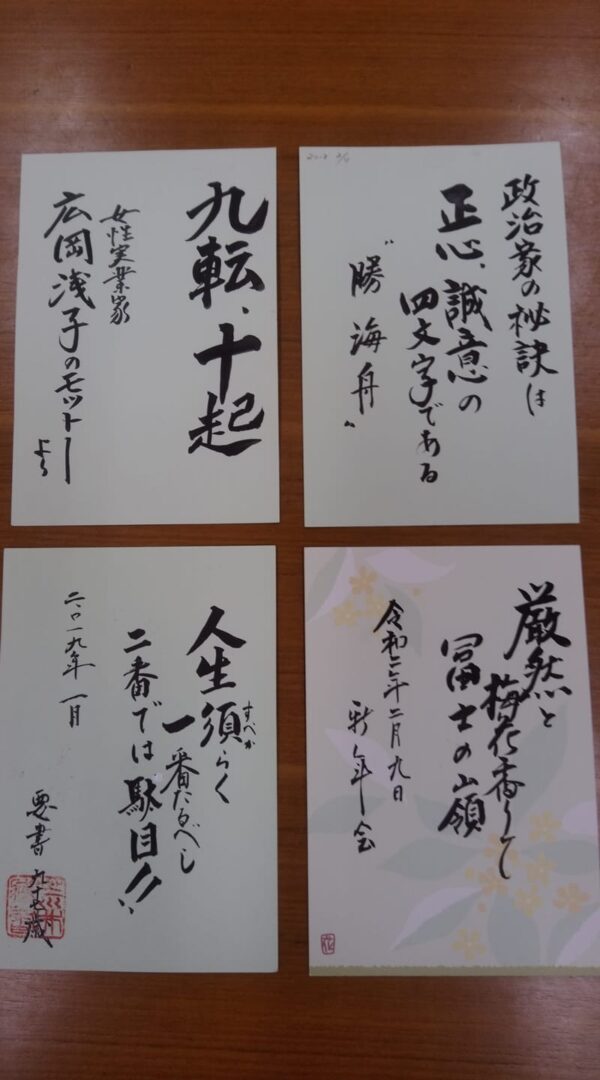 政治家の秘訣は
正心、誠意の
四文字である
〝勝海舟〟
九転、十起
女性実業家
広岡浅子のモットー
より
厳然と
梅花香りて
冨士の山嶺
令和二年二月九日
新年会
人生須らく
すべか
一番たるべし
二番では駄目!!
二〇一九年一月
悪書 九十七歳